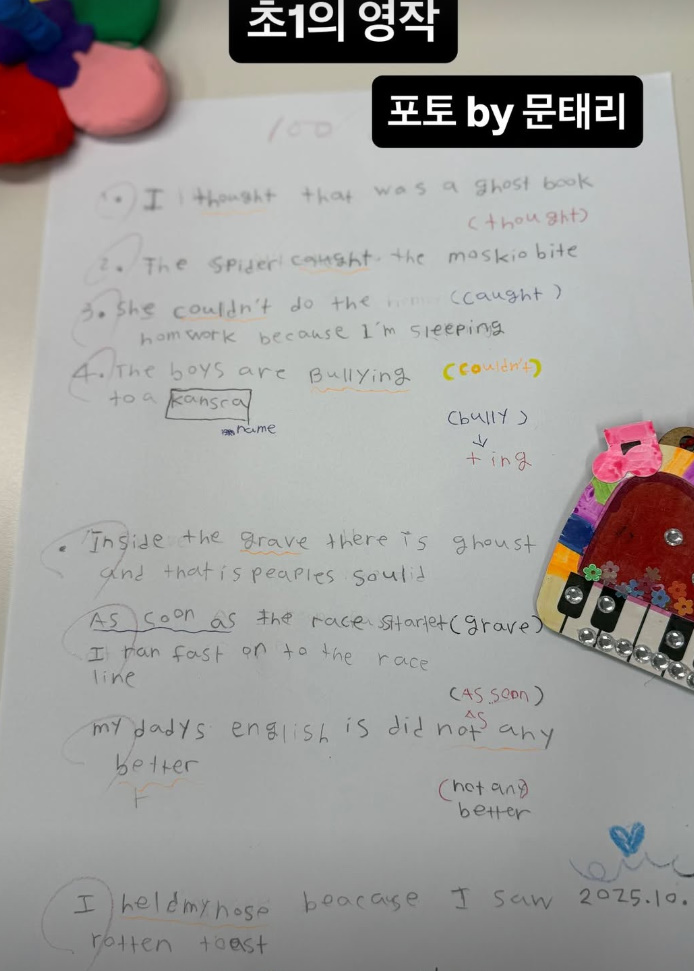 초1의 영작
포토 by 문태리
100
1. I thought that was a ghost book
(thought)
2. The spider caught the moskio bite
3. She couldn't do the (caught)
homwork because I'm sleeping
4. The boys are Bullying (couldn't)
to a kansra
name
(bully)
↓
+ ing
• Inside the grave there is ghoust
and that is peaples sould
As soon as the race startet (grave)
I ran fast on to the race
line
(AS soon)
AS
my dadys english is did not any
better
(not any)
better
I held my nose beacase I saw 2025.10.
rotten toast